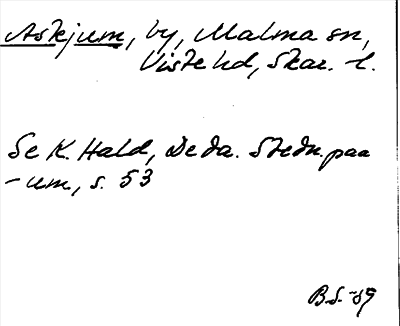 Askjum, by, Malma sn,
Viste hd, Skar. l.
Se K. Hald, De da. Stedn. paa
-um, s. 53
B.S. -59